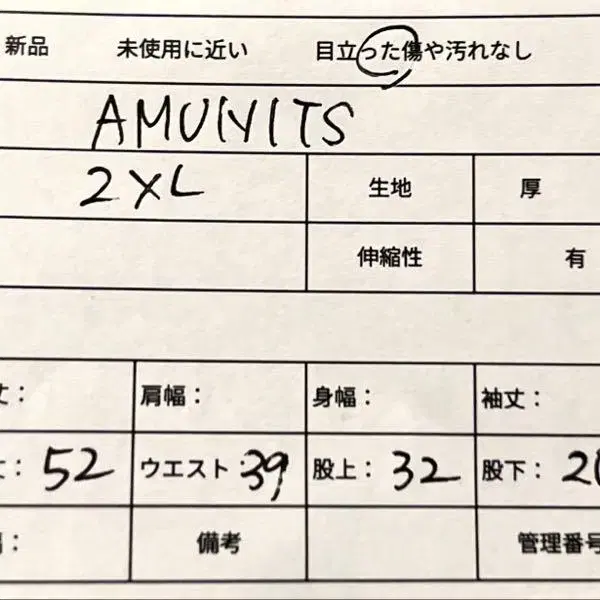 新品 未使用に近い 目立った傷や汚れなし
AMUNITS
2XL 生地 厚
伸縮性 有
丈： 肩幅： 身幅： 袖丈：
丈： 52 ウエスト：39 股上： 32 股下： 20
： 備考 管理番号